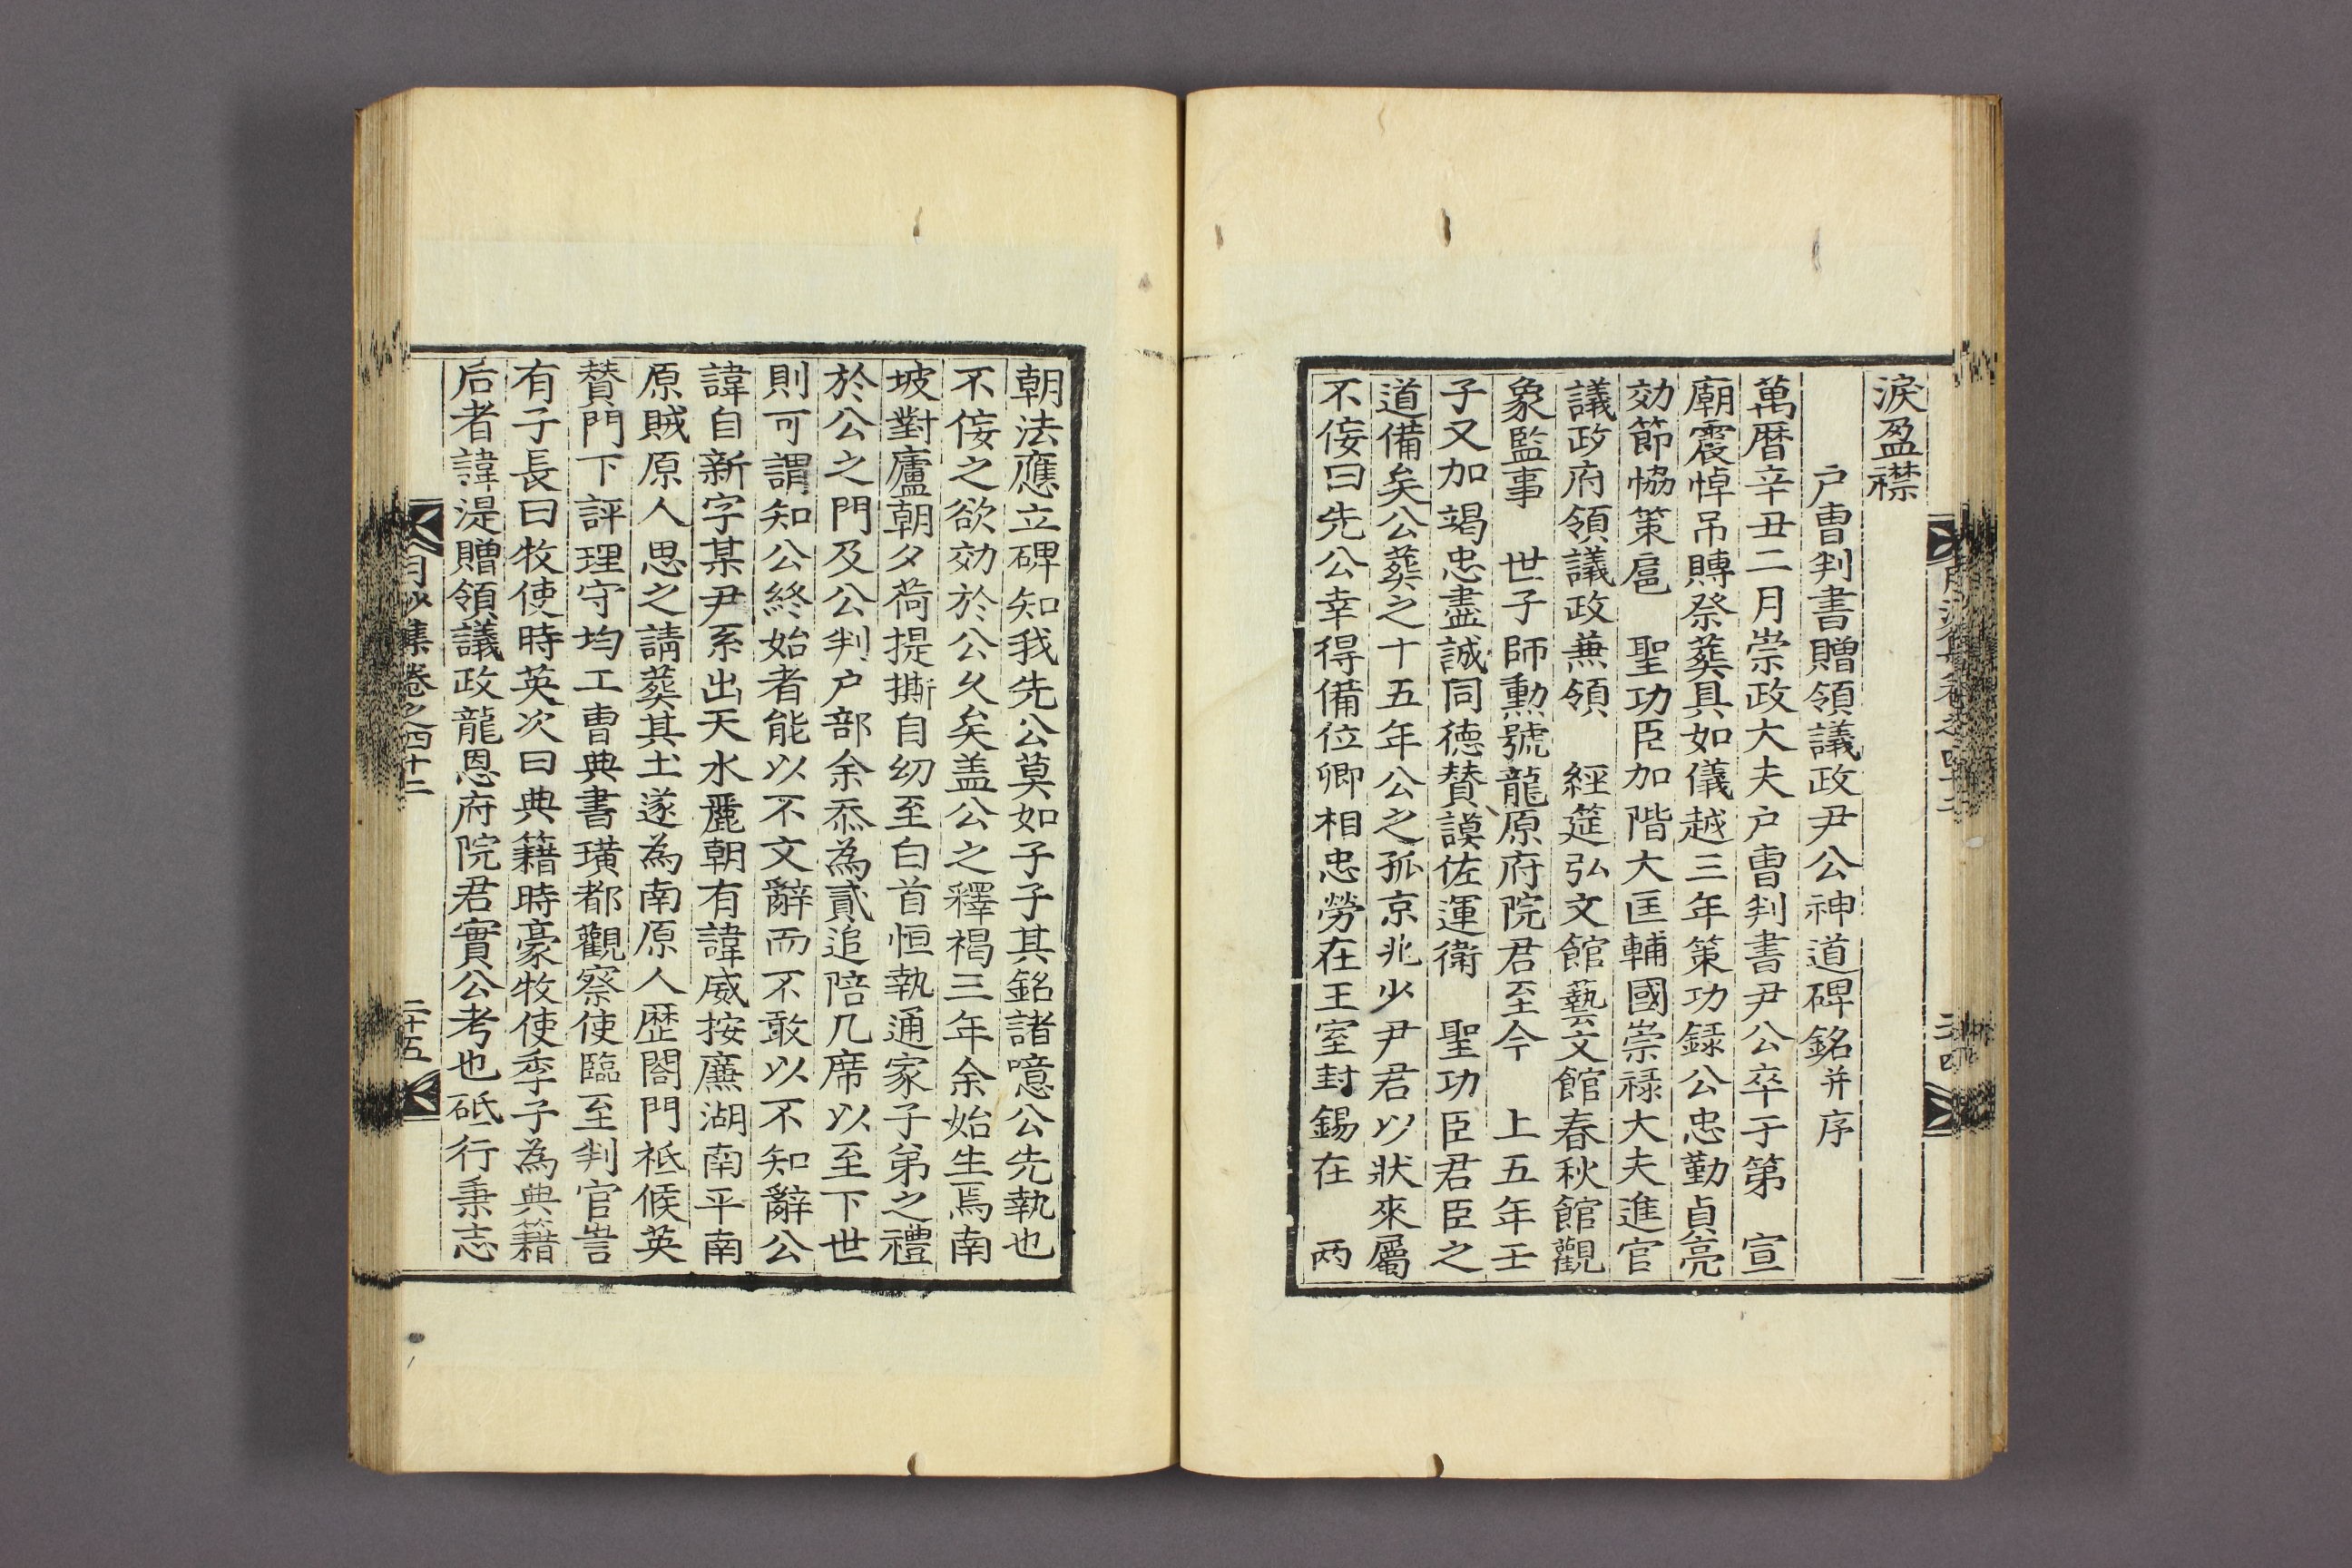 淚盈襟
戶曹判書贈領議政尹公神道碑銘并序
萬曆辛丑二月崇政大夫戶曹判書尹公卒于第 宣
廟震悼吊賻祭葬具如儀越三年策功録公忠勤貞亮
効節協策扈 聖功臣加階大匡輔國崇祿大夫進官
議政府領議政兼領 經筵弘文館藝文館春秋館觀
象監事 世子師勳號龍原府院君至今 上五年壬
子又加竭忠盡誠同德賛謨佐運衛 聖功臣君臣之
道備矣公葬之十五年公之孤京兆少尹君以狀來屬
不侫曰先公幸得備位卿相忠勞在王室封錫在 兩
朝法應立碑知我先公莫如子子其銘諸噫公先執也
不侫之欲効於公久矣盖公之釋褐三年余始生焉南
坡對廬朝夕荷提撕自幼至白首恒執通家子弟之禮
於公之門及公判戶部余忝為貳追陪几席以至下世
則可謂知公終始者能以不文辭而不敢以不知辭公
諱自新字某尹系出天水麗朝有諱威按廉湖南平南
原賊原人思之請葬其土遂為南原人歷閤門祗候英
賛門下評理守均工曹典書璜都觀察使臨至判官訔
有子長曰牧使時英次曰典籍時豪牧使季子為典籍
后者諱湜贈領議政龍恩府院君實公考也砥行秉志
月沙集卷之四十二
二十五